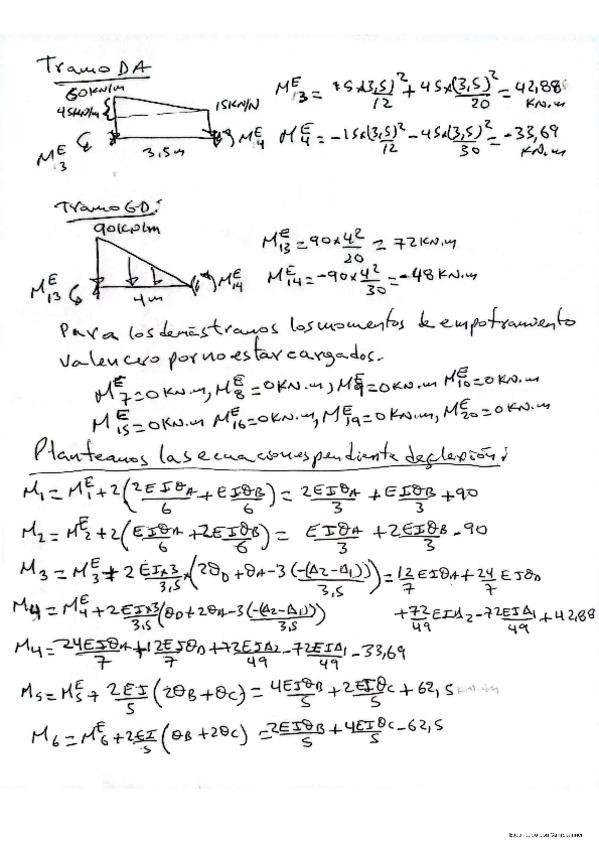 Tramo DA
60KN/m
45KN/m
15KN/N
M₃ᴱ
3,5m
M₄ᴱ
M₃ᴱ = 15x(3,5)²/12 + 45x(3,5)²/20 = 42,88 KN.m
M₄ᴱ = -15x(3,5)²/12 - 45x(3,5)²/30 = -33,69 KN.m
Tramo GD:
90KN/m
M₁₃ᴱ
4m
M₁₄ᴱ
M₁₃ᴱ = 90x4²/20 = 72KN.m
M₁₄ᴱ = -90x4²/30 = -48KN.m
Para los demás tramos los momentos de empotramiento
valen cero por no estar cargados.
M₇ᴱ=0KN.m, M₈ᴱ=0KN.m, M₉ᴱ=0KN.m M₁₀ᴱ=0KN.m
M₁₅ᴱ=0KN.m M₁₆ᴱ=0KN.m, M₁₉ᴱ=0KN.m, M₂₀ᴱ=0KN.m
Planteamos las ecuaciones pendiente deflexión:
M₁ = M₁ᴱ+2(2EIθA/6 + EIθB/6) = 2EIθA/3 + EIθB/3 + 90
M₂ = M₂ᴱ+2(EIθA/6 + 2EIθB/6) = EIθA/3 + 2EIθB/3 - 90
M₃ = M₃ᴱ + 2EIx3/3,5 x(2θD+θA-3(-(Δ2-Δ1))/3,5) = 12/7 EIθA + 24/7 EIθD
+72/49 EIΔ2 - 72EIΔ1/49 + 42,88
M₄ = M₄ᴱ + 2EIx3/3,5 (θD+2θA-3(-(Δ2-Δ1))/3,5)
M₄ = 24EIθA/7 + 12EIθD/7 + 72EIΔ2/49 - 72EIΔ1/49 - 33,69
M₅ = M₅ᴱ + 2EI/5 (2θB+θC) = 4EIθB/5 + 2EIθC/5 + 62,5 KN.m
M₆ = M₆ᴱ + 2EI/5 (θB+2θC) = 2EIθB/5 + 4EIθC/5 - 62,5